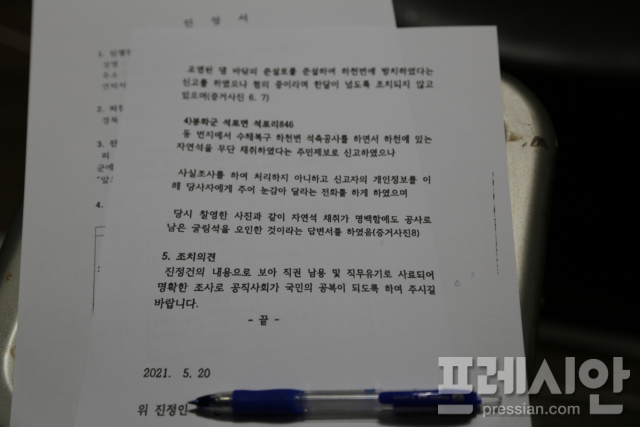 진 정 서
1. 진정
성명
주소
연락처
2. 피
경북
3. 진
피
군에
"앞
4.
오염된 댐 바닥의 준설토를 준설하여 하천변에 방치하였다는
신고를 하였으나 협의 중이라며 한달이 넘도록 조치되지 않고
있으며(증거사진 6. 7)
4)봉화군 석포면 석포리846
동 번지에서 수해복구 하천변 석축공사를 하면서 하천에 있는
자연석을 무단 채취하였다는 주민제보로 신고하였으나
사실조사를 하여 처리하지 아니하고 신고자의 개인정보를 이
해 당사자에게 주어 눈감아 달라는 전화를 하게 하였으며
당시 촬영한 사진과 같이 자연석 채취가 명백함에도 공사로
남은 굴림석을 오인한 것이라는 답변서를 하였음(증거사진8)
5. 조치의견
진정건의 내용으로 보아 직권 남용 및 직무유기로 사료되어
명확한 조사로 공직사회가 국민의 공복이 되도록 하여 주시길
바랍니다.
- 끝 -
2021. 5. 20
위 진정인
프레시안
pressian.com